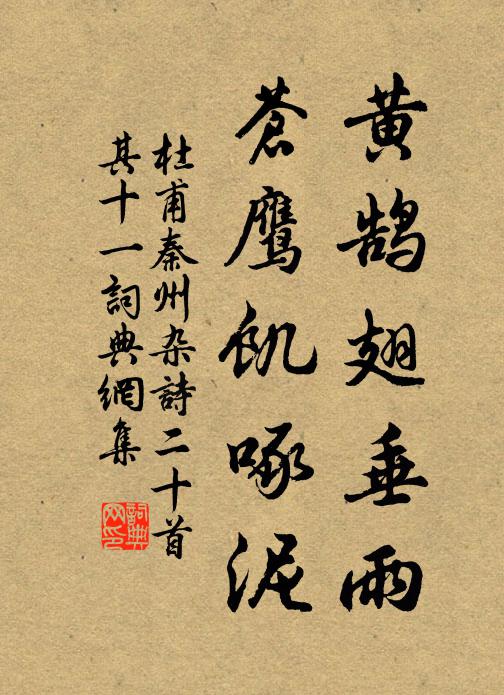 黄鹄翅垂雨
苍鹰饥啄泥
杜甫秦州杂詩二十首
其十一詞典網集
詞典网印